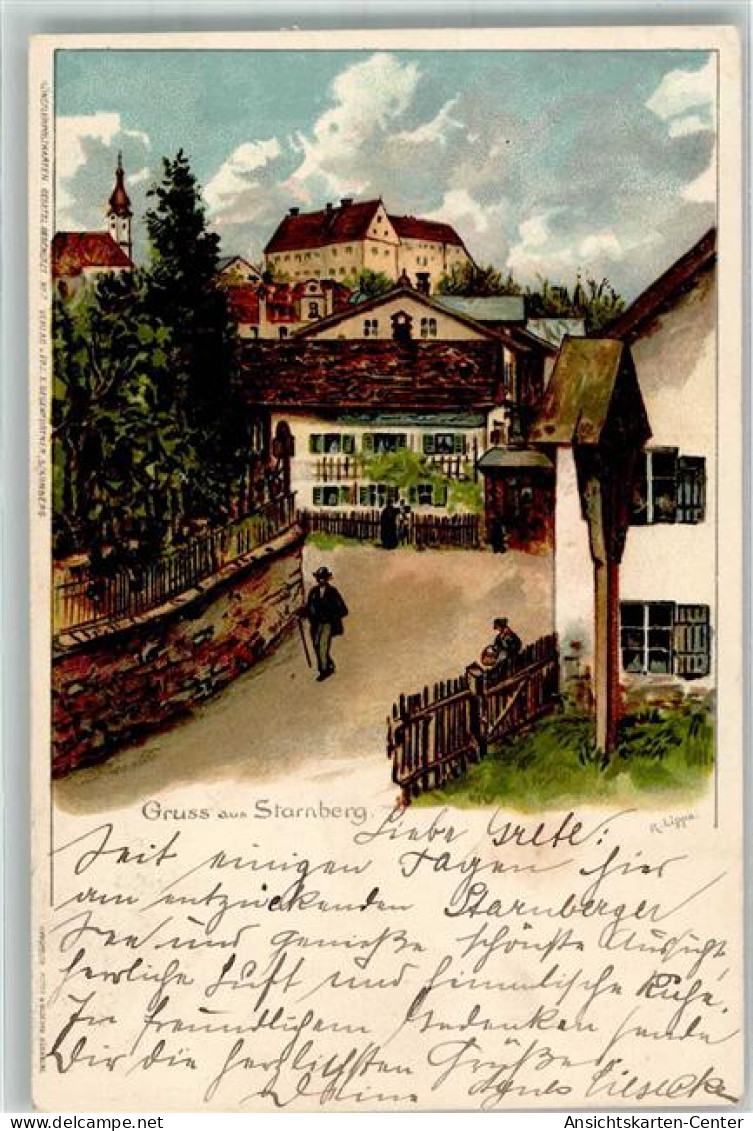 Gruss aus Starnberg.
R. Lipps.
Liebe Grete:
Seit einigen Tagen hier
am entzückenden Starnberger
See und genieße schönste Aussicht,
herrliche Luft und himmlische Ruhe.
In freundlichem Gedenken sende
Dir die herzlichsten Grüße
Deine Agnes
Ansichtskarten-Center